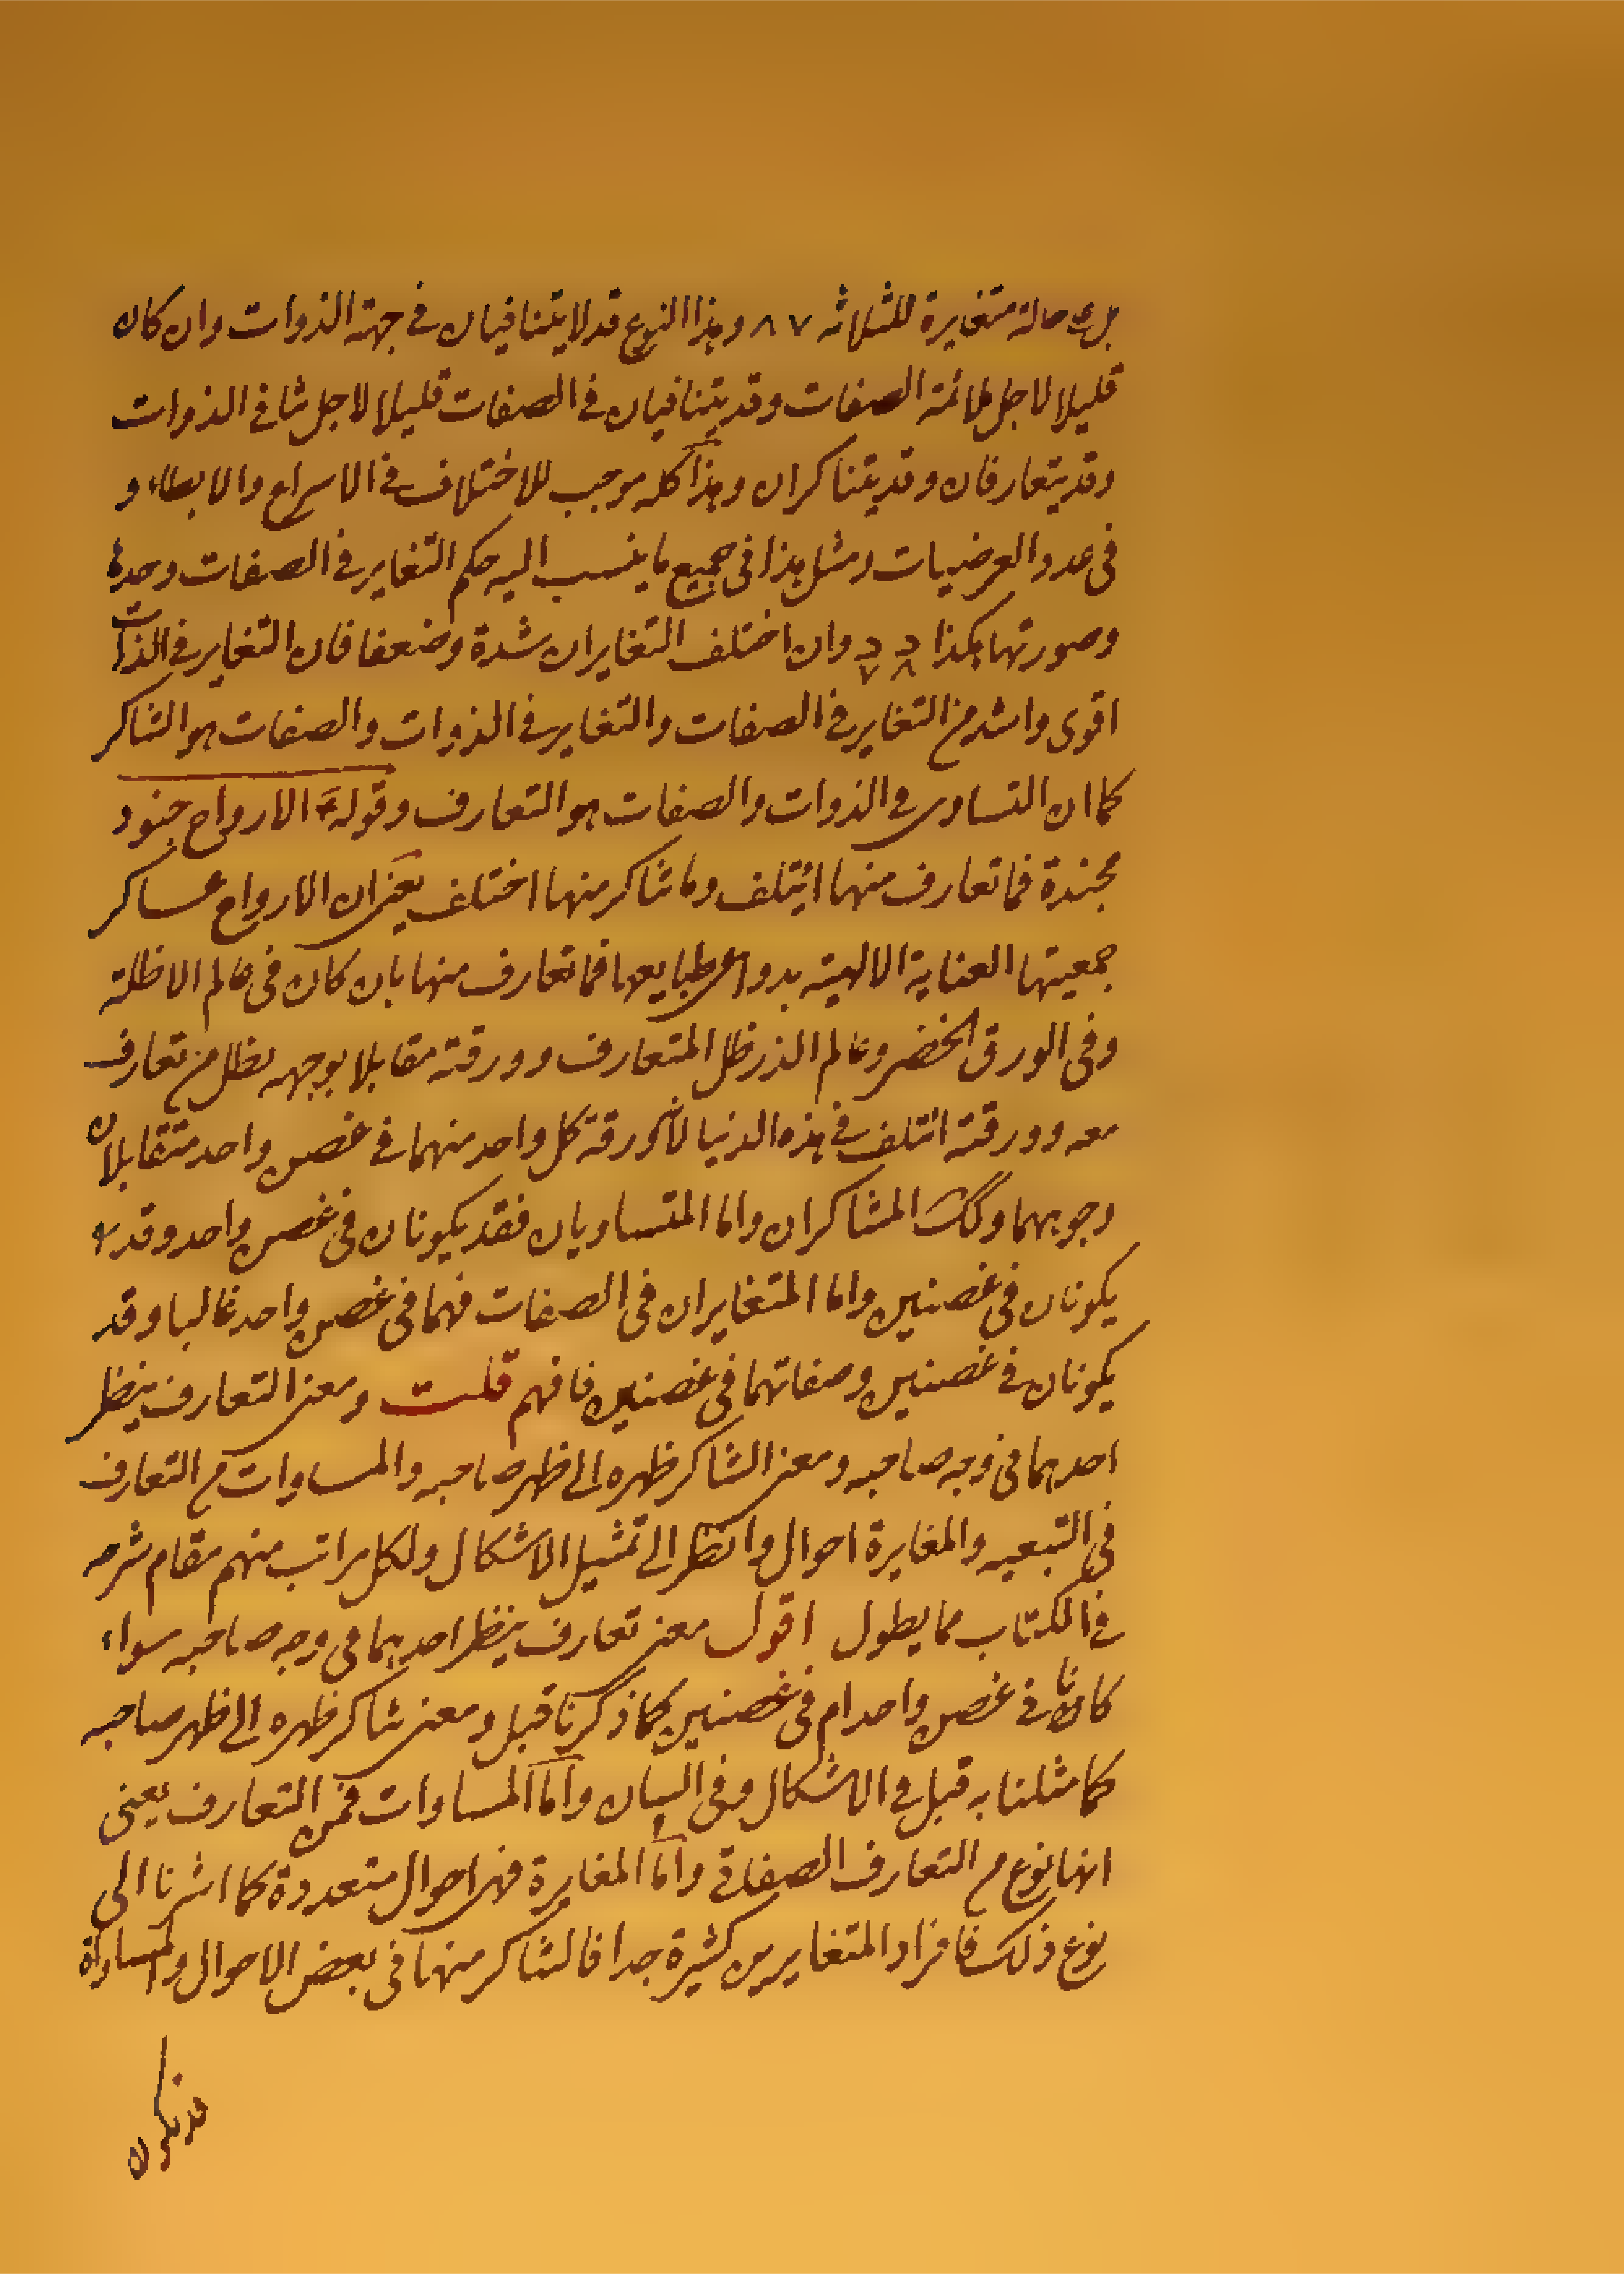 بل هي حالة متغايرة للثلاثه ٧ ٨ وهذا النوع قد لا يتنافيان في جهة الذوات وان كان
قليلا لاجل ملائمة الصفات وقد يتنافيان في الصفات قليلا لاجل تنافي الذوات
وقد يتعارفان وقد يتناكران وهذا كله موجب للاختلاف في الاسراع والابطاء و
في عدد العرضيات ومثل هذا في جميع ما ينسب اليه حكم التغاير في الصفات وحدها
وصورتها هكذا وان اختلف التغايران شدة وضعفا فان التغاير في الذات
اقوى واشد من التغاير في الصفات والتغاير في الذوات والصفات هو التناكر
كما ان التساوى في الذوات والصفات هو التعارف وقوله ع الارواح جنود
مجندة فما تعارف منها ائتلف وما تناكر منها اختلف يعنى ان الارواح عساكر
جمعيتها العناية الالهية بدواعى طبايعها فما تعارف منها بان كان في عالم الاظلة
وفى الورق الخضر وعالم الذر ظل المتعارف وورقته مقابلا بوجهه لظل من تعارف
معه وورقته ائتلف في هذه الدنيا لان ورقة كل واحد منهما في غصن واحد متقابلان
وجوههما وكك المتناكران واما المتساويان فقد يكونان في غصن واحد وقد لا
يكونان في غصنين واما المتغايران في الصفات فهما في غصن واحد غالبا وقد
يكونان في غصنين وصفاتهما في غصنين فافهم قلت ومعنى التعارف ينظر
احدهما في وجه صاحبه ومعنى التناكر ظهره الى ظهر صاحبه والمساوات من التعارف
في التبعيه والمغايرة احوال وانظر الى تمثيل الاشكال ولكل مراتب منهم مقام شرحه
في الكتاب مما يطول اقول معنى تعارف ينظر احدهما في وجه صاحبه سواء
كانا في غصن واحد ام في غصنين كما ذكرنا قبل ومعنى تناكر ظهره الى ظهر صاحبه
كما مثلنا به قبل في الاشكال وفى البيان واما المساوات فمن التعارف يعنى
انها نوع من التعارف الصفاتي واما المغايرة فهى احوال متعددة كما اشرنا الى
نوع ذلك فافراد المتغايرين كثيرة جدا فالتناكر منها في بعض الاحوال والمساواة
قد يكون